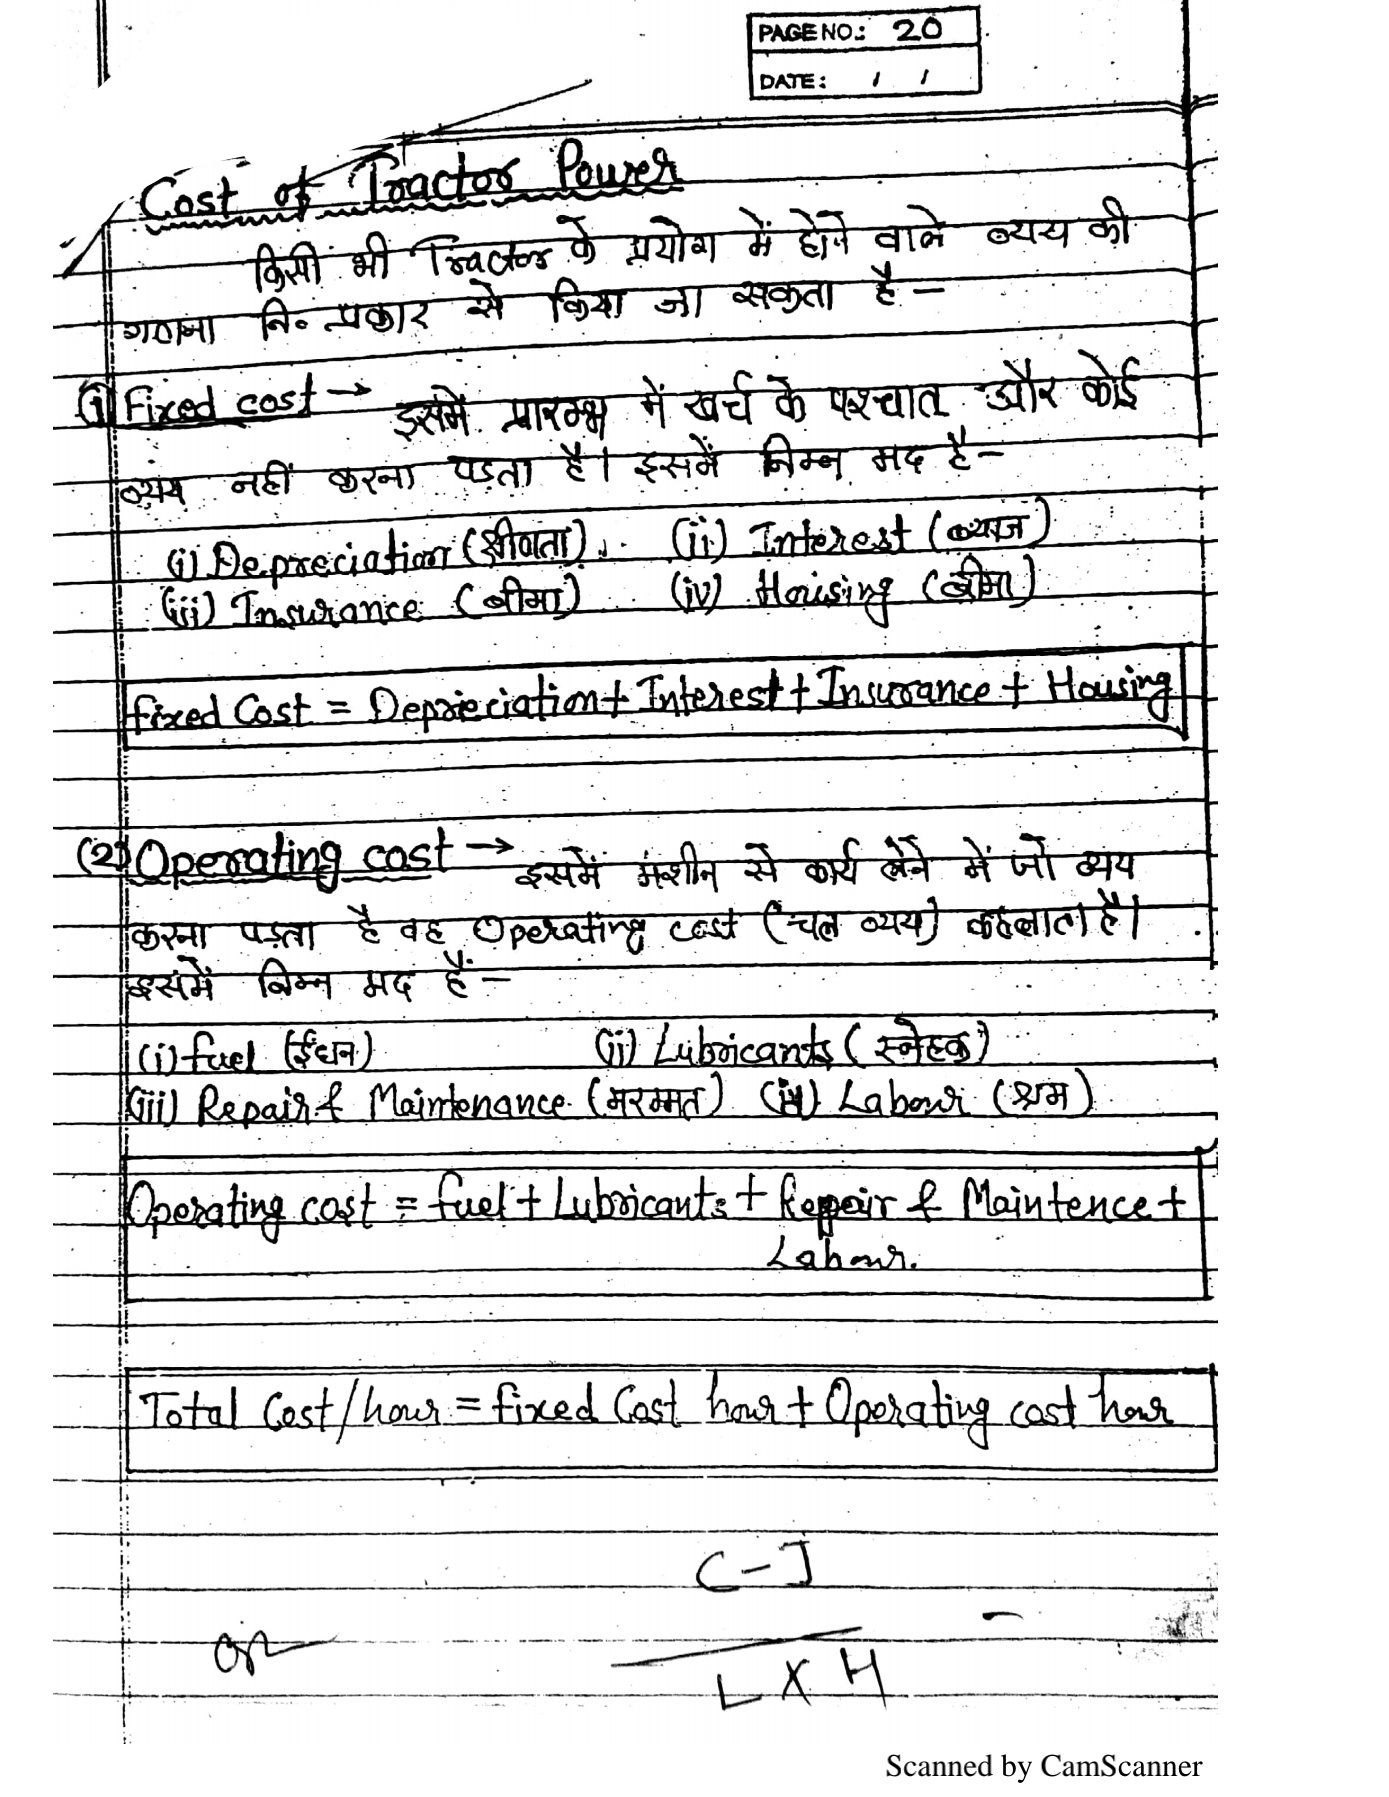 PAGE NO.: 20
DATE: / /
Cost of Tractor Power
किसी भी Tractor के प्रयोग में होने वाले व्यय की
गणना नि० प्रकार से किया जा सकता है –
(1) Fixed cost → इसमें प्रारम्भ में खर्च के पश्चात और कोई
व्यय नहीं करना पड़ता है। इसमें निम्न मद है –
(i) Depreciation (क्षीणता). (ii) Interest (ब्याज)
(iii) Insurance (बीमा) (iv) Housing (बीमा)
Fixed Cost = Depreciation + Interest + Insurance + Housing
(2) Operating cost → इसमें मशीन से कार्य लेने में जो व्यय
करना पड़ता है वह Operating cost (चल व्यय) कहलाता है।
इसमें निम्न मद हैं –
(i) fuel (ईंधन) (ii) Lubricants (स्नेहक)
(iii) Repair & Maintenance (मरम्मत) (iv) Labour (श्रम)
Operating cost = fuel + Lubricants + Repair & Maintence +
Labour.
Total Cost/hour = fixed Cost hour + Operating cost hour
C - J
or
L X H
Scanned by CamScanner